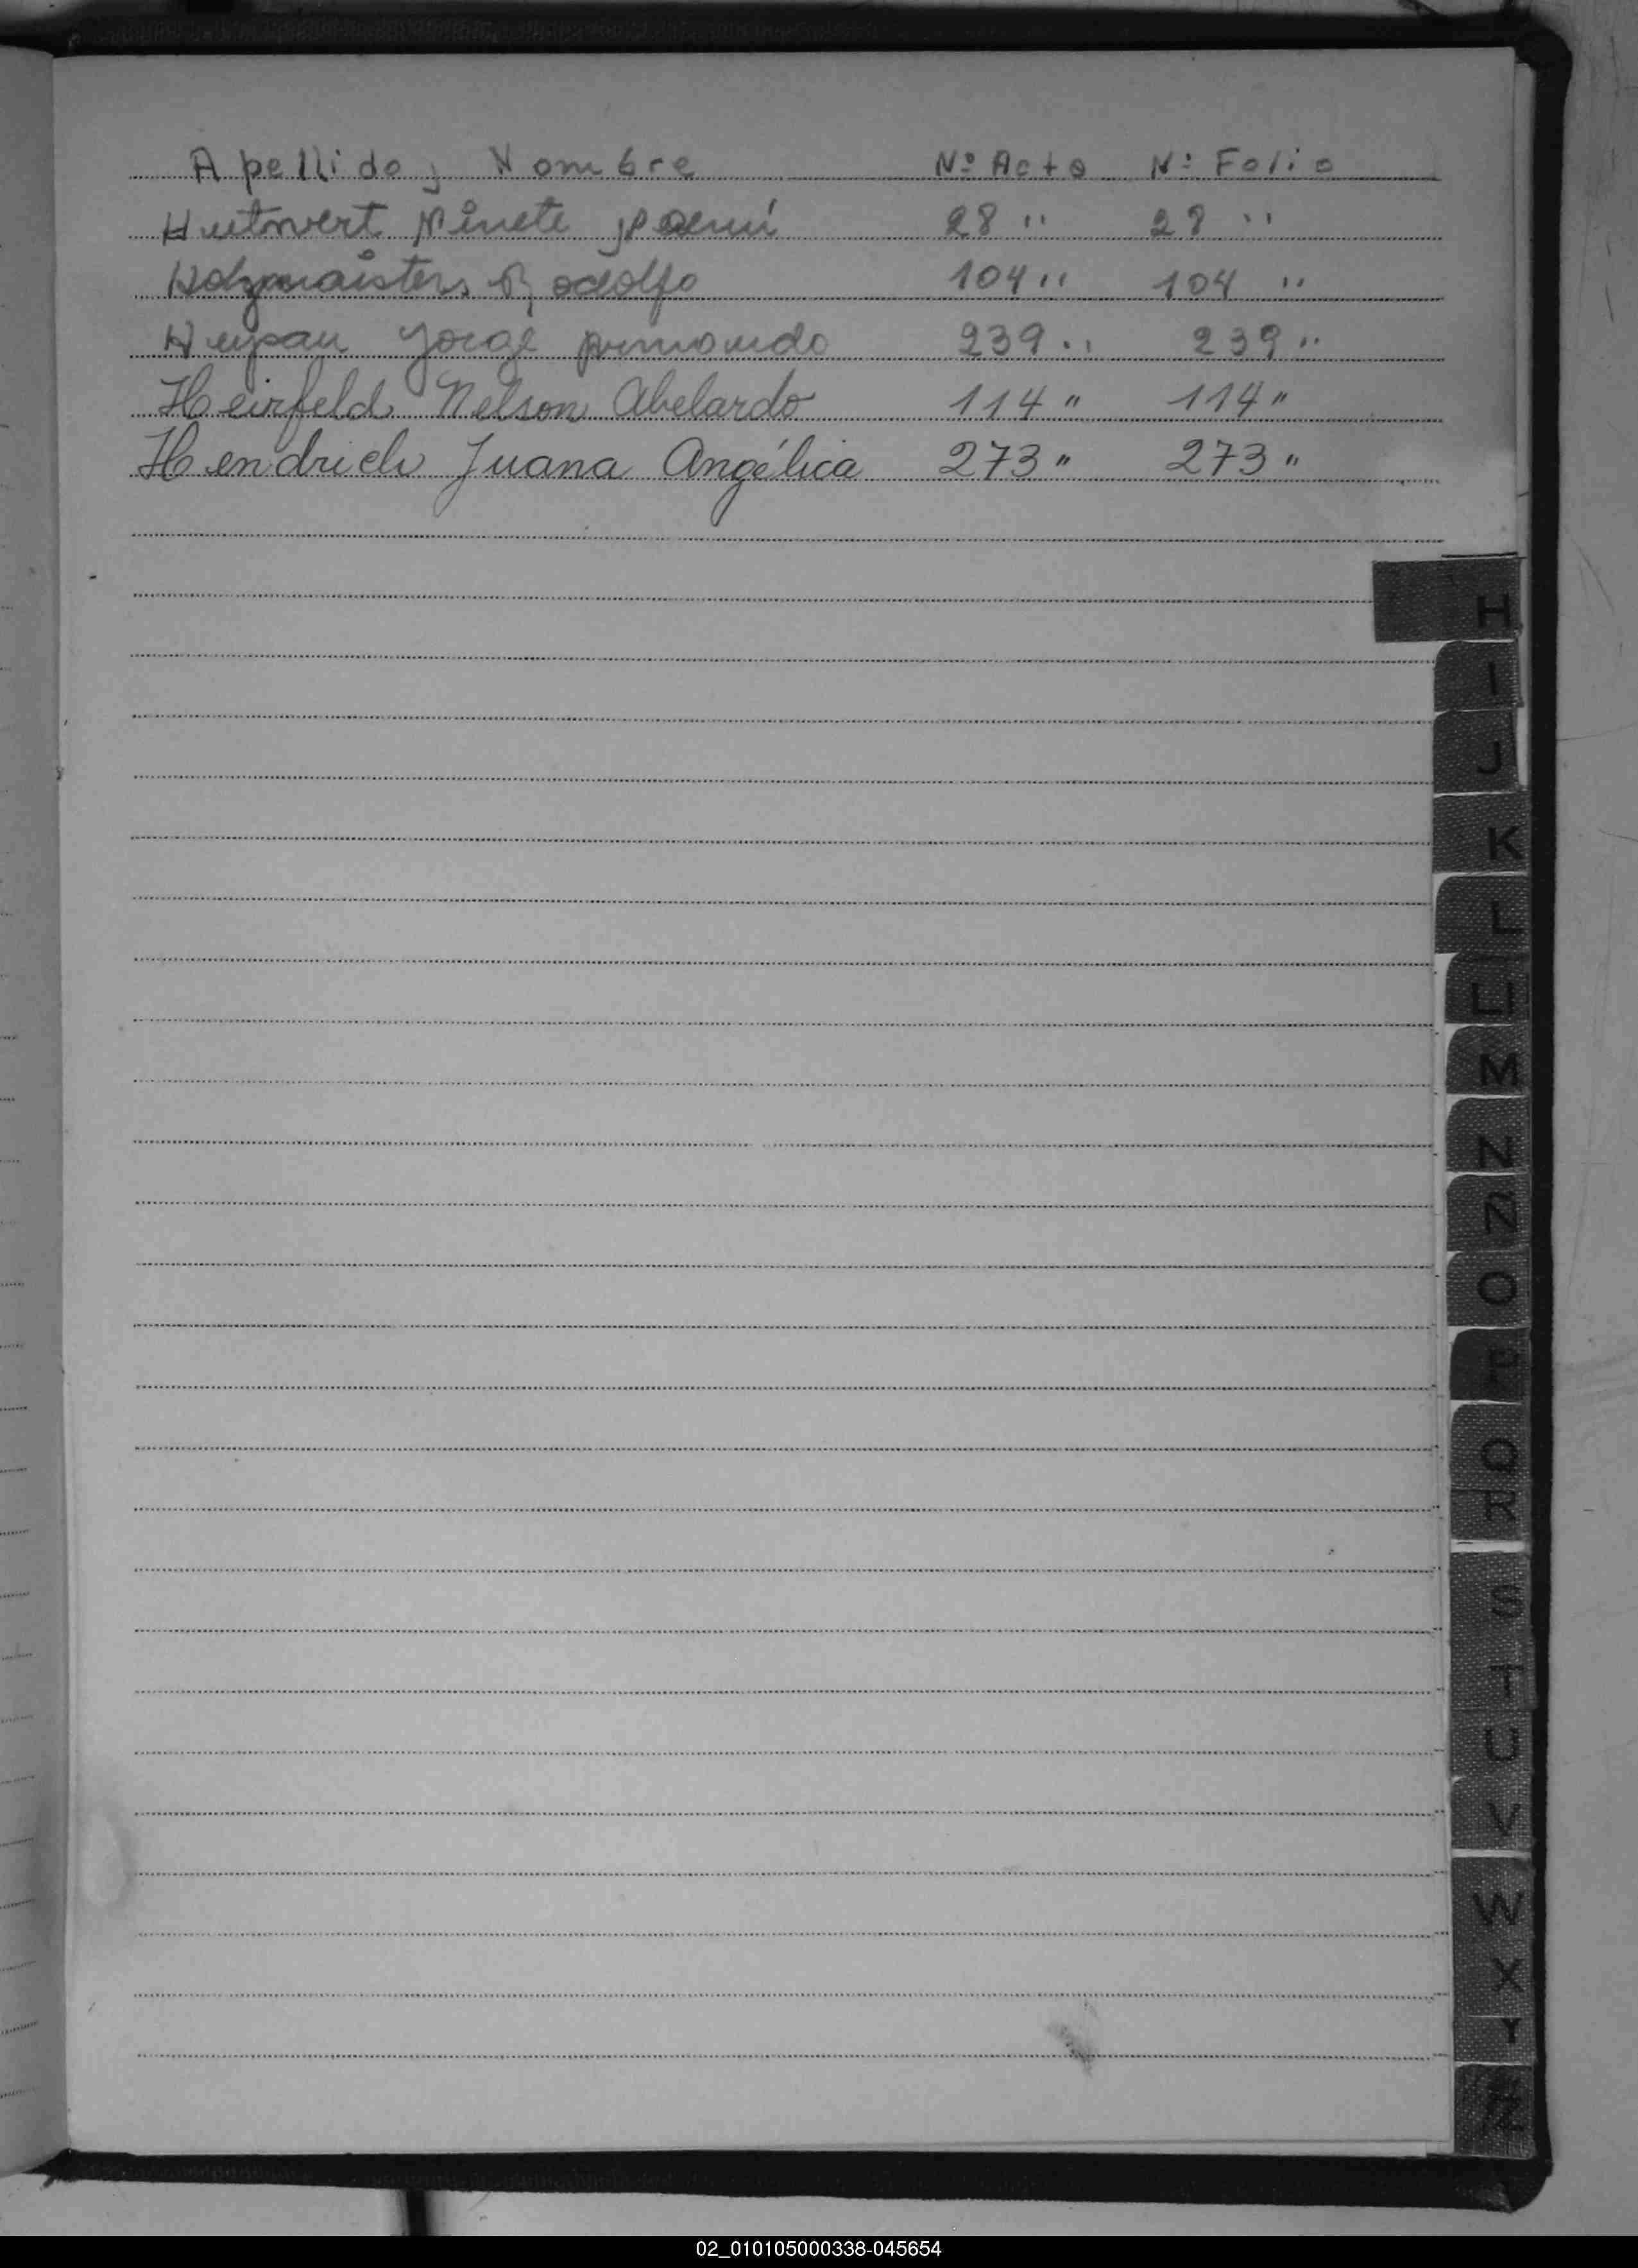 Apellido y Nombre Nº Acta Nº Folio
28 " 28 "
Rodolfo 104 " 104 "
Jorge 239 " 239 "
Heirfeld Nelson Abelardo 114 " 114 "
Hendrich Juana Angélica 273 " 273 "
H
I
J
K
L
LL
M
N
Ñ
O
P
Q
R
S
T
U
V
W
X
Y
Z
02_010105000338-045654